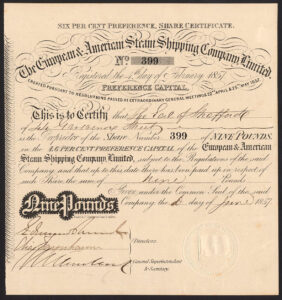 SIX PER CENT PREFERENCE, SHARE CERTIFICATE.
The European & American Steam Shipping Company Limited.
No 399
Registered the day of February 1857.
PREFERENCE CAPITAL.
CREATED PURSUANT TO RESOLUTIONS PASSED AT EXTRAORDINARY GENERAL MEETINGS 15TH APRIL & 25TH MAY 1857.
This is to Certify that The Earl of Sheffield
of Grosvenor Street
is the Proprietor of the Share Number 399 of NINE POUNDS.
on the £6 PER CENT PREFERENCE CAPITAL of the European & American
Steam Shipping Company Limited, subject to the Regulations of the said
Company, and that up to this date there has been paid up in respect of
such Share the sum of Nine Pounds
Given under the Common Seal of the said
Company, the day of June 1857
Nine Pounds
Directors.
General Superintendent
& Secretary.